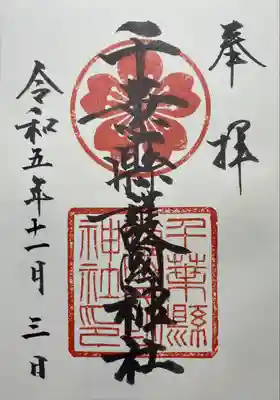 奉拝
千葉縣護國神社
令和五年十一月三日
千葉縣
護國
神社印